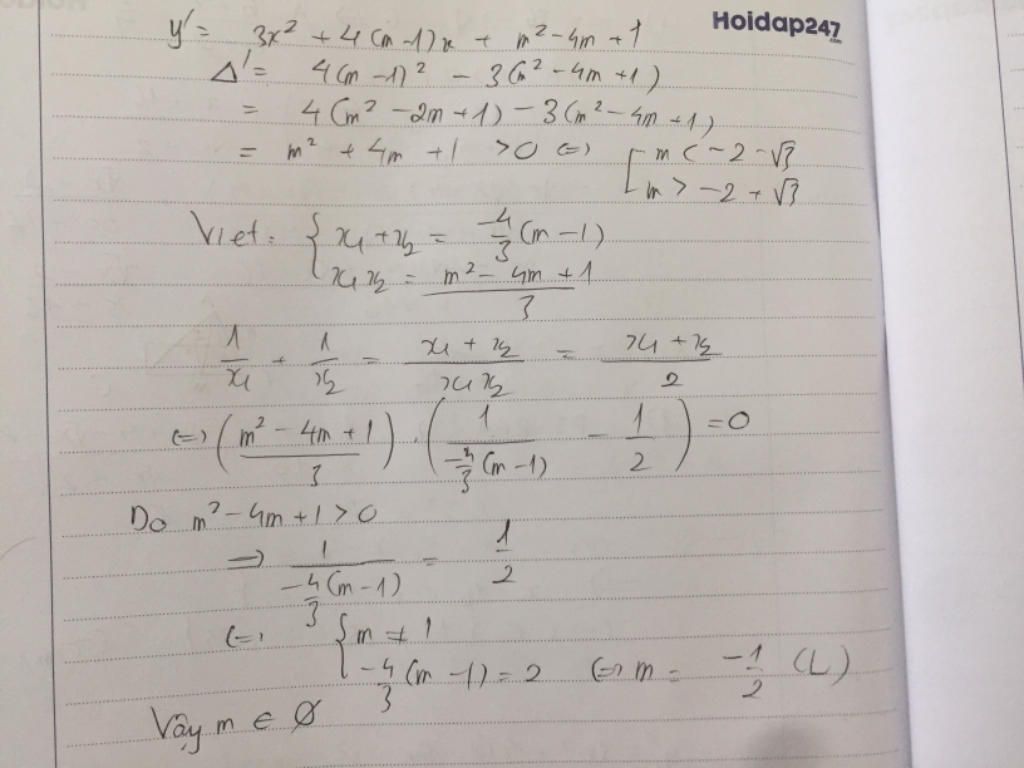 Hoidap247.com
y' = 3x² + 4(m-1)x + m² - 4m + 1
Δ' = 4(m-1)² - 3(m² - 4m + 1)
= 4(m² - 2m + 1) - 3(m² - 4m + 1)
= m² + 4m + 1 > 0 (=) [ m < -2 - √3
m > -2 + √3
Viet: { x₁ + x₂ = -4/3 (m - 1)
x₁x₂ = (m² - 4m + 1)/3
1/x₁ + 1/x₂ = (x₁ + x₂)/(x₁x₂) = (x₁ + x₂)/2
(=) ((m² - 4m + 1)/3) . (1/(-4/3 (m - 1)) - 1/2) = 0
Do m² - 4m + 1 > 0
=> 1/(-4/3 (m - 1)) = 1/2
(=) { m ≠ 1
-4/3 (m - 1) = 2 (=) m = -1/2 (L)
Vậy m ∈ Ø